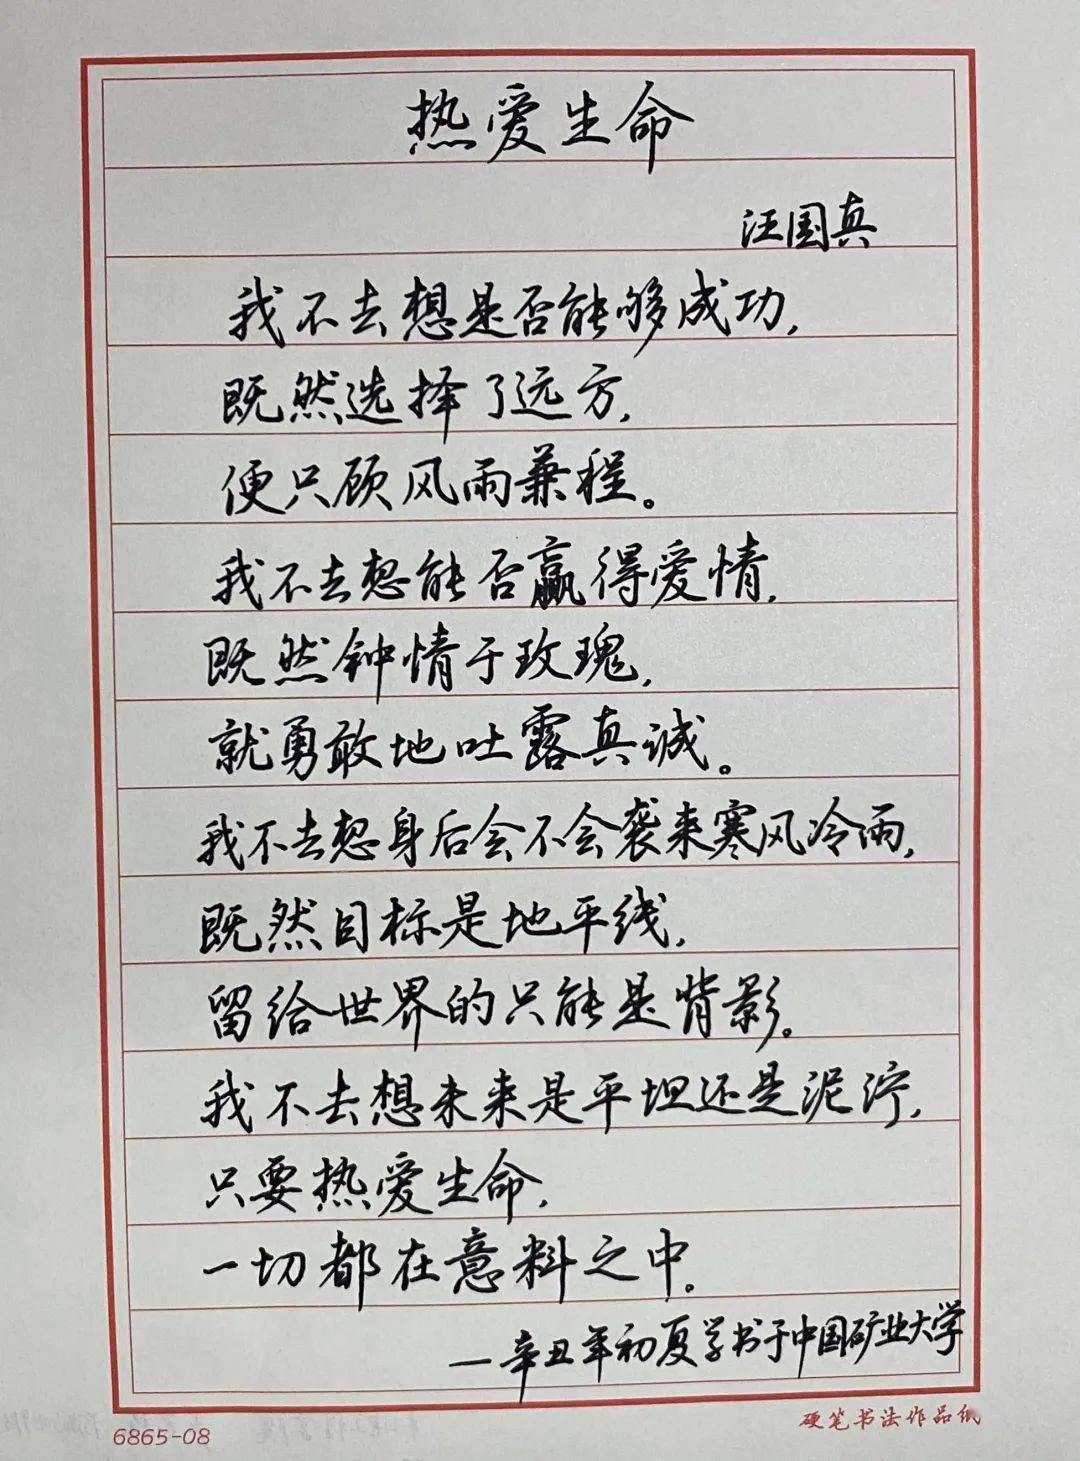 热爱生命
汪国真
我不去想是否能够成功,
既然选择了远方,
便只顾风雨兼程。
我不去想能否赢得爱情,
既然钟情于玫瑰,
就勇敢地吐露真诚。
我不去想身后会不会袭来寒风冷雨,
既然目标是地平线,
留给世界的只能是背影。
我不去想未来是平坦还是泥泞,
只要热爱生命,
一切都在意料之中。
—辛丑年初夏学书于中国矿业大学
6865-08
硬笔书法作品纸